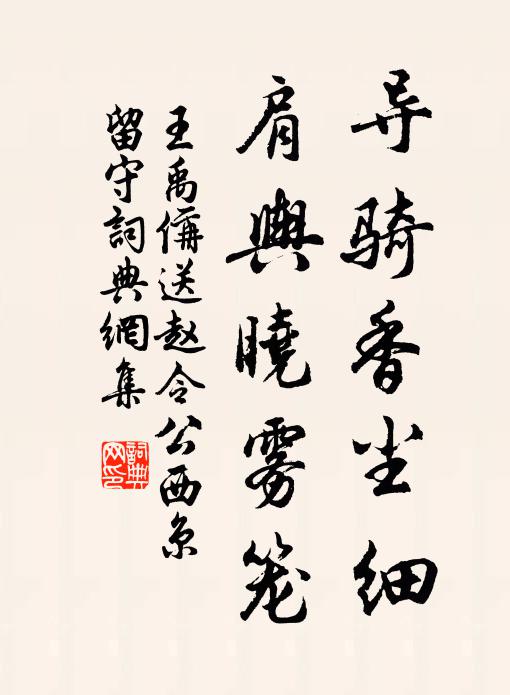 导骑香尘细
肩舆晓雾笼
王禹偁送赵令公西京
留守词典網集
詞典网印